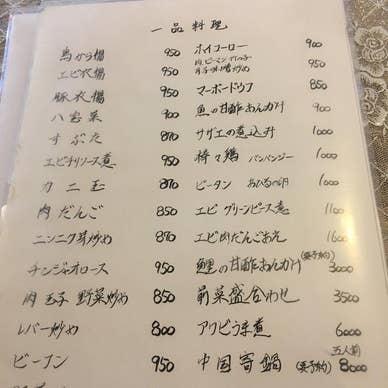 一品料理
鳥から揚 950
エビ衣揚 950
豚衣揚 950
八宝菜 950
すぶた 870
エビチリソース煮 950
カニ玉 870
肉だんご 850
ニンニク芽炒め 850
チンジャオロース 950
肉玉子野菜炒め 850
レバー炒め 800
ビーフン 950
ホイコーロー 900
肉ピーマンナスの
辛子味噌炒め 950
マーボードウフ 850
魚の甘酢あんかけ 900
サザエの煮込み 1000
棒々鶏 バンバンジー 1000
ピータン あひるの卵 1000
エビグリーンピース煮 1100
エビ肉だんごあえ 1600
鯉の甘酢あんかけ (要予約) 3000
前菜盛合わせ 3500
アワビうま煮 6000
中国寄鍋 (要予約) 五人前 8000